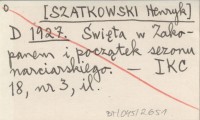 [SZATKOWSKI Henryk]
D 1927. Święta w Zako-
panem i początek sezonu
narciarskiego. — IKC
18, nr 3, il.